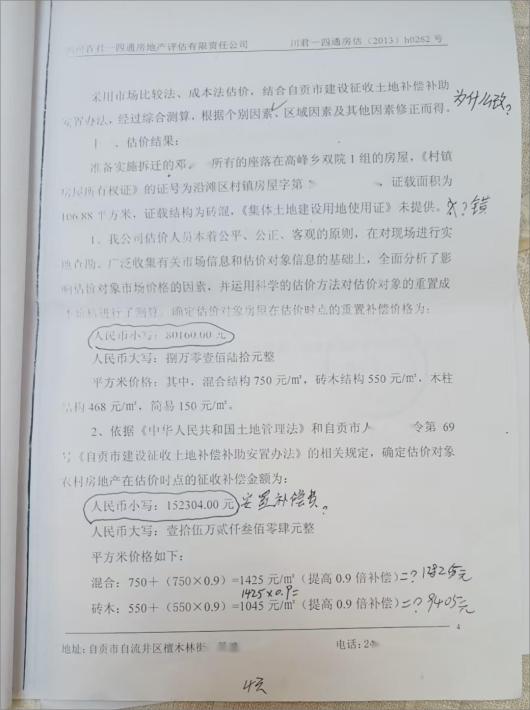 四川省君一四通房地产评估有限责任公司 川君一四通房估（2013）h0262 号
采用市场比较法、成本法估价，结合自贡市建设征收土地补偿补助
安置办法，经过综合测算，根据个别因素、区域因素及其他因素修正而得。
为什么改？
十一、估价结果：
准备实施拆迁的邓 所有的座落在高峰乡双院 1 组的房屋，《村镇
房屋所有权证》的证号为沿滩区村镇房屋字第 ，证载面积为
106.88 平方米，证载结构为砖混，《集体土地建设用地使用证》未提供。
？错
1、我公司估价人员本着公平、公正、客观的原则，在对现场进行实
地查勘、广泛收集有关市场信息和估价对象信息的基础上，全面分析了影
响估价对象市场价格的因素，并运用科学的估价方法对估价对象的重置成
本价格进行了测算，确定估价对象房屋在估价时点的重置补偿价格为：
人民币小写：80160.00 元
人民币大写：捌万零壹佰陆拾元整
平方米价格：其中，混合结构 750 元/㎡，砖木结构 550 元/㎡，木柱
结构 468 元/㎡，简易 150 元/㎡。
2、依据《中华人民共和国土地管理法》和自贡市人 令第 69
号《自贡市建设征收土地补偿补助安置办法》的相关规定，确定估价对象
农村房地产在估价时点的征收补偿金额为：
人民币小写：152304.00 元
安置补偿费？
人民币大写：壹拾伍万贰仟叁佰零肆元整
平方米价格如下：
混合：750＋（750×0.9）=1425 元/㎡（提高 0.9 倍补偿）=？1282.5元
1425×0.9=
砖木：550＋（550×0.9）=1045 元/㎡（提高 0.9 倍补偿）=？940.5元
4
地址：自贡市自流井区檀木林街 电话：24